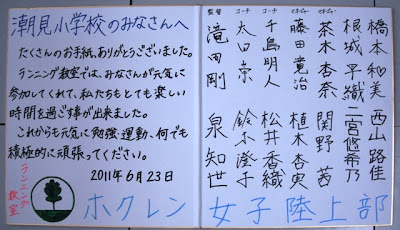 潮見小学校のみなさんへ
たくさんのお手紙、ありがとうございました。
ランニング教室では、みなさんが元気に
参加してくれて、私たちもとても楽しい
時間を過ごす事が出来ました。
これからも元気に勉強・運動、何でも
積極的に頑張ってください。
2011年6月23日
ランニング教室
ホクレン 女子陸上部
橋本和美 西山路佳
根城早織 二宮悠希乃
茶木杏奈 関野茜
藤田寛治 植木杏実
コーチ 千島明人 松井香織
コーチ 太田崇 鈴木澄子
監督 滝田剛 泉知世